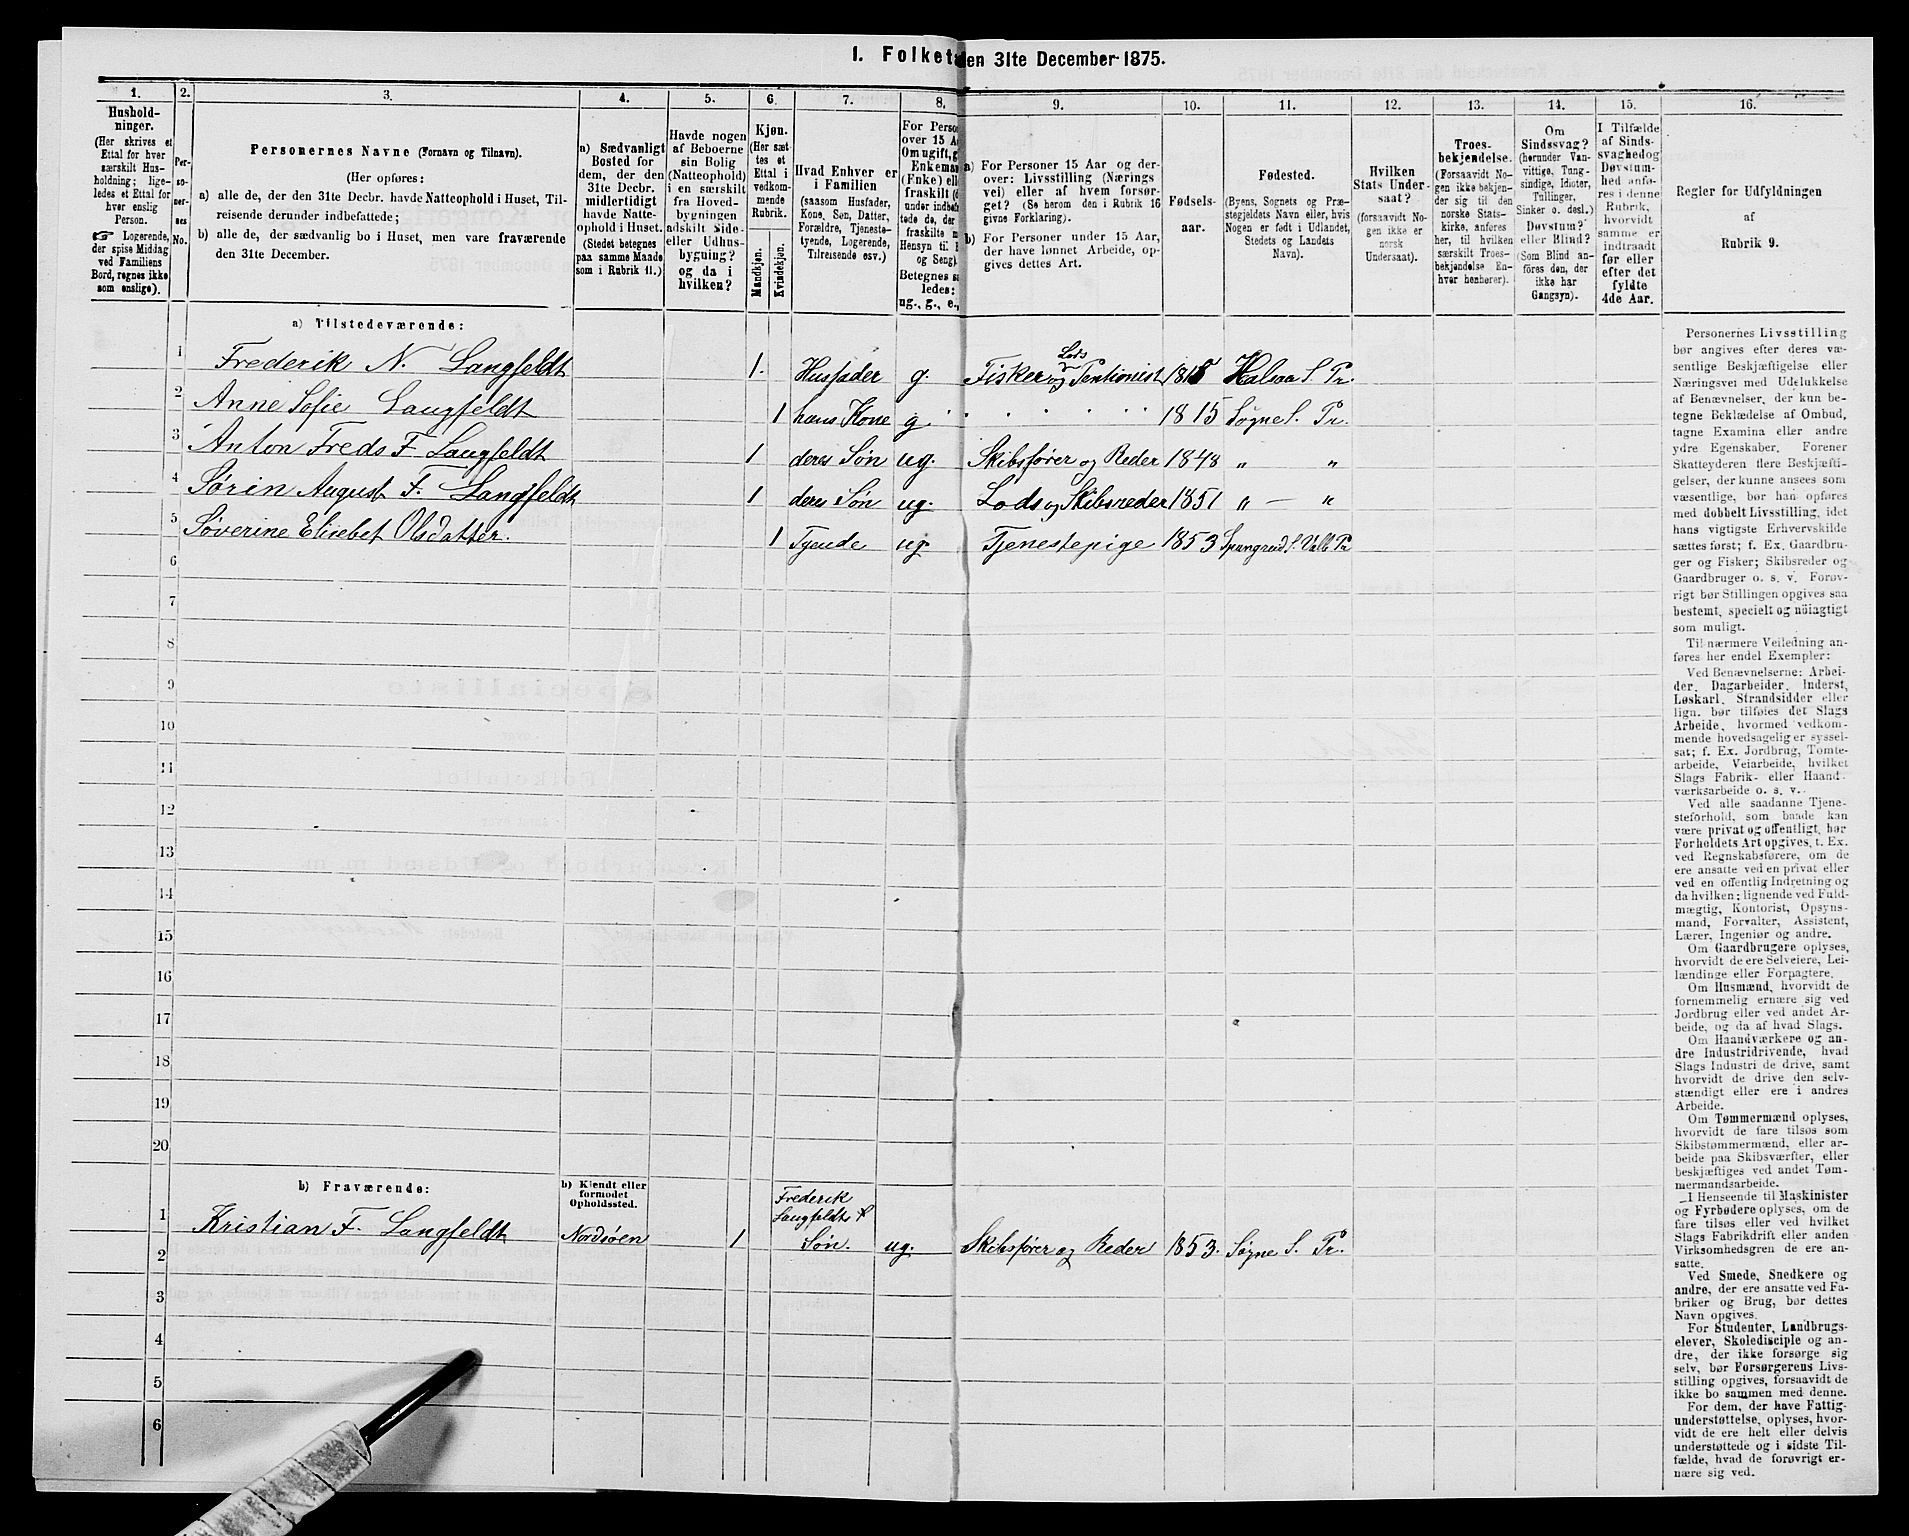 1. Folket den 31te December 1875.
1. 2. 3. 4. 5. 6. 7. 8. 9. 10. 11. 12. 13. 14. 15. 16.
Hushold-
ninger.
(Her skrives et
Ettal for hver
særskilt Hus-
holdning; lige-
ledes et Ettal for
hver enslig
Person.
☞ Logerende,
der spise Middag
ved Familiens
Bord, regnes ikke
som enslige).
Per-
so-
ner-
nes
No.
Personernes Navne (Fornavn og Tilnavn).
(Her opføres:
a) alle de, der den 31te Decbr. havde Natteophold i Huset, Til-
reisende derunder indbefattede;
b) alle de, der sædvanlig bo i Huset, men vare fraværende
den 31te December.
a) Sædvanligt
Bosted for
dem, der den
31te Decbr.
midlertidigt
havde Natte-
ophold i Huset.
(Stedet betegnes
paa samme Maade
som i Rubrik 11.)
Havde nogen
af Beboerne
sin Bolig
(Natteophold)
i en særskilt
fra Hoved-
bygningen
adskilt Side-
eller Udhus-
bygning?
og da i
hvilken?
Kjøn.
(Her sæt-
tes et
Ettal i
vedkom-
mende
Rubrik.
Mandkjøn.
Kvindekjøn.
Hvad Enhver er
i Familien
(saasom Husfader,
Kone, Søn, Datter,
Forældre, Tjeneste-
tyende, Logerende,
Tilreisende osv.)
For Perso
over 15 A
Om ugift, g
Enkeman
(Enke) ell
fraskilt (
under indbe
tede de, de
fraskilte
Hensyn til
og Seng)
Betegnes s
ledes:
ug., g., e.,
a) For Personer 15 Aar og der-
over: Livsstilling (Nærings
vei) eller af hvem forsør-
get? (Se herom den i Rubrik 16
givne Forklaring).
b) For Personer under 15 Aar,
der have lønnet Arbeide, op-
gives dettes Art.
Fødsels-
aar.
Fødested.
(Byens, Sognets og Præ-
stegjeldets Navn eller, hvis
Nogen er født i Udlandet,
Stedets og Landets
Navn).
Hvilken
Stats Under-
saat?
(forsaavidt No-
gen ikke er
norsk
Undersaat).
Troes-
bekjendelse.
(Forsaavidt No-
gen ikke bekjen-
der sig til den
norske Stats-
kirke, anføres
her, til hvilken
særskilt Troes-
bekjendelse En-
hver henhører).
Om
Sindssvag?
(herunder Van-
vittige, Tung-
sindige, Idioter,
Tullinger,
Sinker o. desl.)
Døvstum?
eller Blind?
(Som Blind an-
føres den, der
ikke har
Gangsyn).
I Tilfælde
af Sinds-
svaghed og
Døvstum-
hed anfø-
res i denne
Rubrik,
hvorvidt
samme er
indtraadt
før eller
efter det
fyldte
4de Aar.
Regler for Udfyldningen
af
Rubrik 9.
a) Tilstedeværende:
1 Frederik N. Langfeldt 1. Husfader g. Fisker og Lods Pentionist 1815 Halsaa S. Pr.
2 Anne Sofie Langfeldt 1 hans Kone g 1815 Søgne S. Pr.
3 Anton Freds F Langfeldt 1 deres Søn ug. Skibsfører og Reder 1848 " "
4 Sørin August F. Langfeldt 1 deres Søn ug. Lods og Skibsreder 1851 " — "
5 Søverine Elisebet Olsdatter. 1 Tyende ug. Tjenestepige 1853 S. Valle Pr
6
7
8
9
10
11
12
13
14
15
16
17
18
19
20
b) Fraværende:
b) Kjendt eller
formodet
Opholdssted.
1 Kristian F. Langfeldt Nordsøen 1 Frederik
Langfeldts
Søn. ug. Skibsfører og Reder 1853. Søgne S. Pr.
2
3
4
5
6
Personernes Livsstilling
bør angives efter deres væ-
sentlige Beskjæftigelse eller
Næringsvei med Udelukkelse
af Benævnelser, der kun be-
tegne Beklædelse af Ombud,
tagne Examina eller andre
ydre Egenskaber. Forener
Skatteyderen flere Beskjæfti-
gelser, der kunne ansees som
væsentlige, bør han opføres
med dobbelt Livsstilling, idet
hans vigtigste Erhvervskilde
sættes først; f. Ex. Gaardbru-
ger og Fisker; Skibsreder og
Gaardbruger o. s. v. Forøv-
rigt bør Stillingen opgives saa
bestemt, specielt og nöiagtigt
som muligt.
Til nærmere Veiledning an-
føres her endel Exempler:
Ved Benævnelserne: Arbei-
der, Dagarbeider, Inderst,
Løskarl, Strandsidder eller
lign. bør tilføies det Slags
Arbeide, hvormed vedkom-
mende hovedsagelig er syssel-
sat; f. Ex. Jordbrug, Tomte-
arbeide, Veiarbeide, hvilket
Slags Fabrik- eller Haand-
værksarbeide o. s. v.
Ved alle saadanne Tjene-
steforhold, som baade kan
være privat og offentligt, bør
Forholdets Art opgives, t. Ex.
ved Regnskabsførere, om de
ere ansatte ved en privat eller
ved en offentlig Indretning og
da hvilken; lignende ved Fuld-
mægtig, Kontorist, Opsyns-
mand, Forvalter, Assistent,
Lærer, Ingeniør og andre.
Om Gaardbrugere oplyses,
hvorvidt de ere Selveiere, Lei-
lændinge eller Forpagtere.
Om Husmænd, hvorvidt de
fornemmelig ernære sig ved
Jordbrug eller ved andet Ar-
beide, og da af hvad Slags.
Om Haandværkere og an-
dre Industridrivende, hvad
Slags Industri de drive, samt
hvorvidt de drive den selv-
stændigt eller ere i andres
Arbeide.
Om Tømmermænd oplyses,
hvorvidt de fare tilsøs som
Skibstømmermænd, eller ar-
beide paa Skibsværfter, eller
beskjæftiges ved andet Tøm-
mermandsarbeide.
I Henseende til Maskinister
og Fyrbødere oplyses, om de
fare tilsøs eller ved hvilket
Slags Fabrikdrift eller anden
Virksomhedsgren de ere an-
satte.
Ved Smede, Snedkere og
andre, der ere ansatte ved Fa-
briker og Brug, bør dettes
Navn opgives.
For Studenter, Landbrugs-
elever, Skoledisciple og an-
dre, der ikke forsørge sig
selv, bør Forsørgerens Livs-
stilling opgives, forsaavidt de
ikke bo sammen med denne.
For dem, der have Fattig-
understøttelse, oplyses, hvor-
vidt de ere helt eller delvis
understøttede og i sidste Til-
fælde, hvad de forøvrigt er-
nære sig ved.